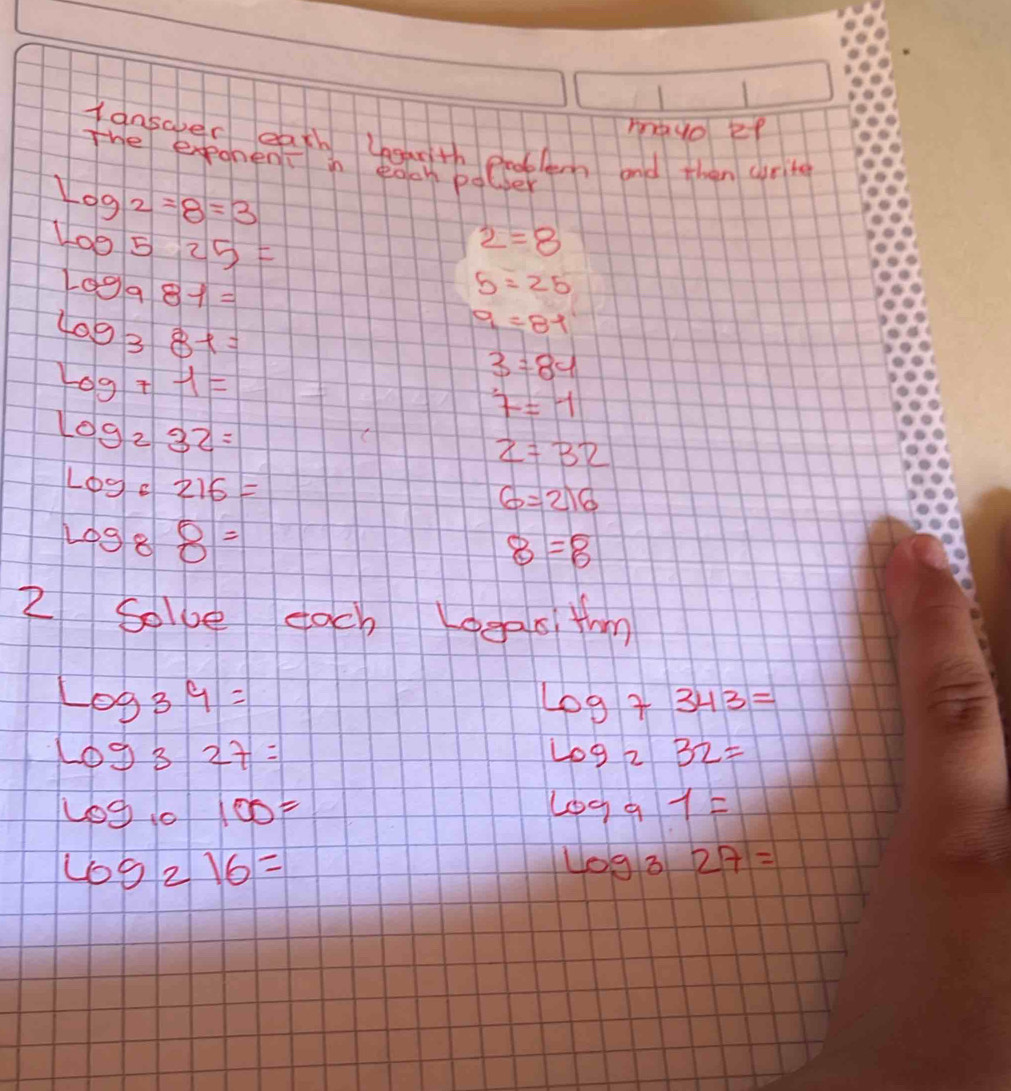 mayo 21
1 answer each Logarith problem and then write
The exponent in each power
Log 2 = 8 = 3
2 = 8
Log 5 25 =
5 = 25
Log 9 81 =
9 = 81
Log 3 81 =
3 = 81
Log 7 1 =
7 = 1
Log 2 32 =
2 = 32
Log 6 216 =
6 = 216
Log 8 8 =
8 = 8
2 Solve each Logarithm
Log 3 9 =
Log 7 343 =
Log 3 27 =
Log 2 32 =
Log 10 100 =
Log 9 1 =
Log 2 16 =
Log 3 27 =